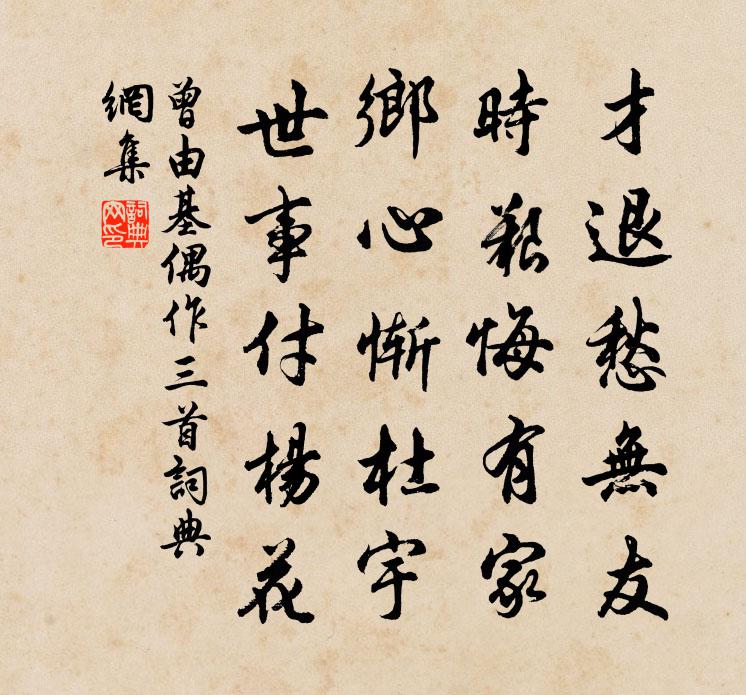 才退愁無友
時艱悔有家
鄉心慚杜宇
世事付楊花
曾由基偶作三首詞典
網集
詞典
网印